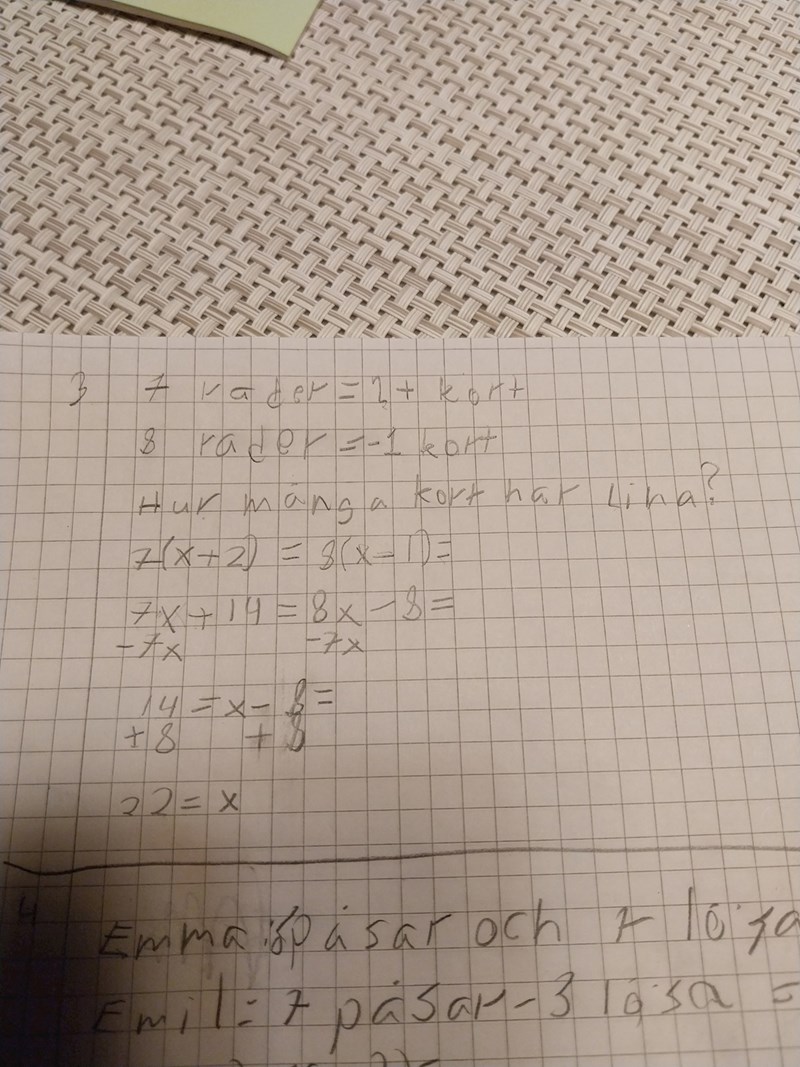 3 7 rader = 2+ kort
8 rader = -1 kort
Hur många kort har Lina?
7(x+2) = 8(x-1)=
7x + 14 = 8x - 8 =
-7x -7x
14 = x - 8 =
+8 +8
22 = x
4 Emma: påsar och lösa
Emil: 7 påsar - 3 lösa =